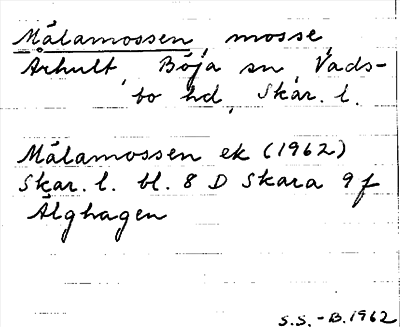 Målamossen, mosse,
Arhult, Böja sn, Vads-
bo hd, Skar. l.
Målamossen ek (1962)
Skar. l. bl. 8 D Skara 9f
Älghagen
S.S. - B. 1962